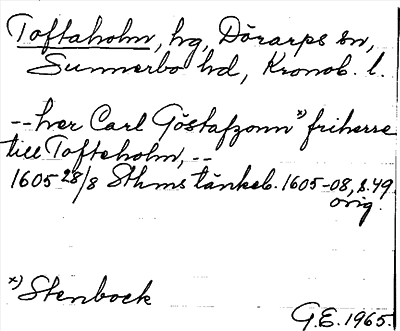 Toftaholm, hg, Dörarps sn,
Sunnerbo hd, Kronob. l.
-- her Carl Göstafzonn x) friherre
till Tofteholm, --
1605 28/8 Sthms tänkeb. 1605-08, s. 49.
orig.
x) Stenbock
G.E. 1965.